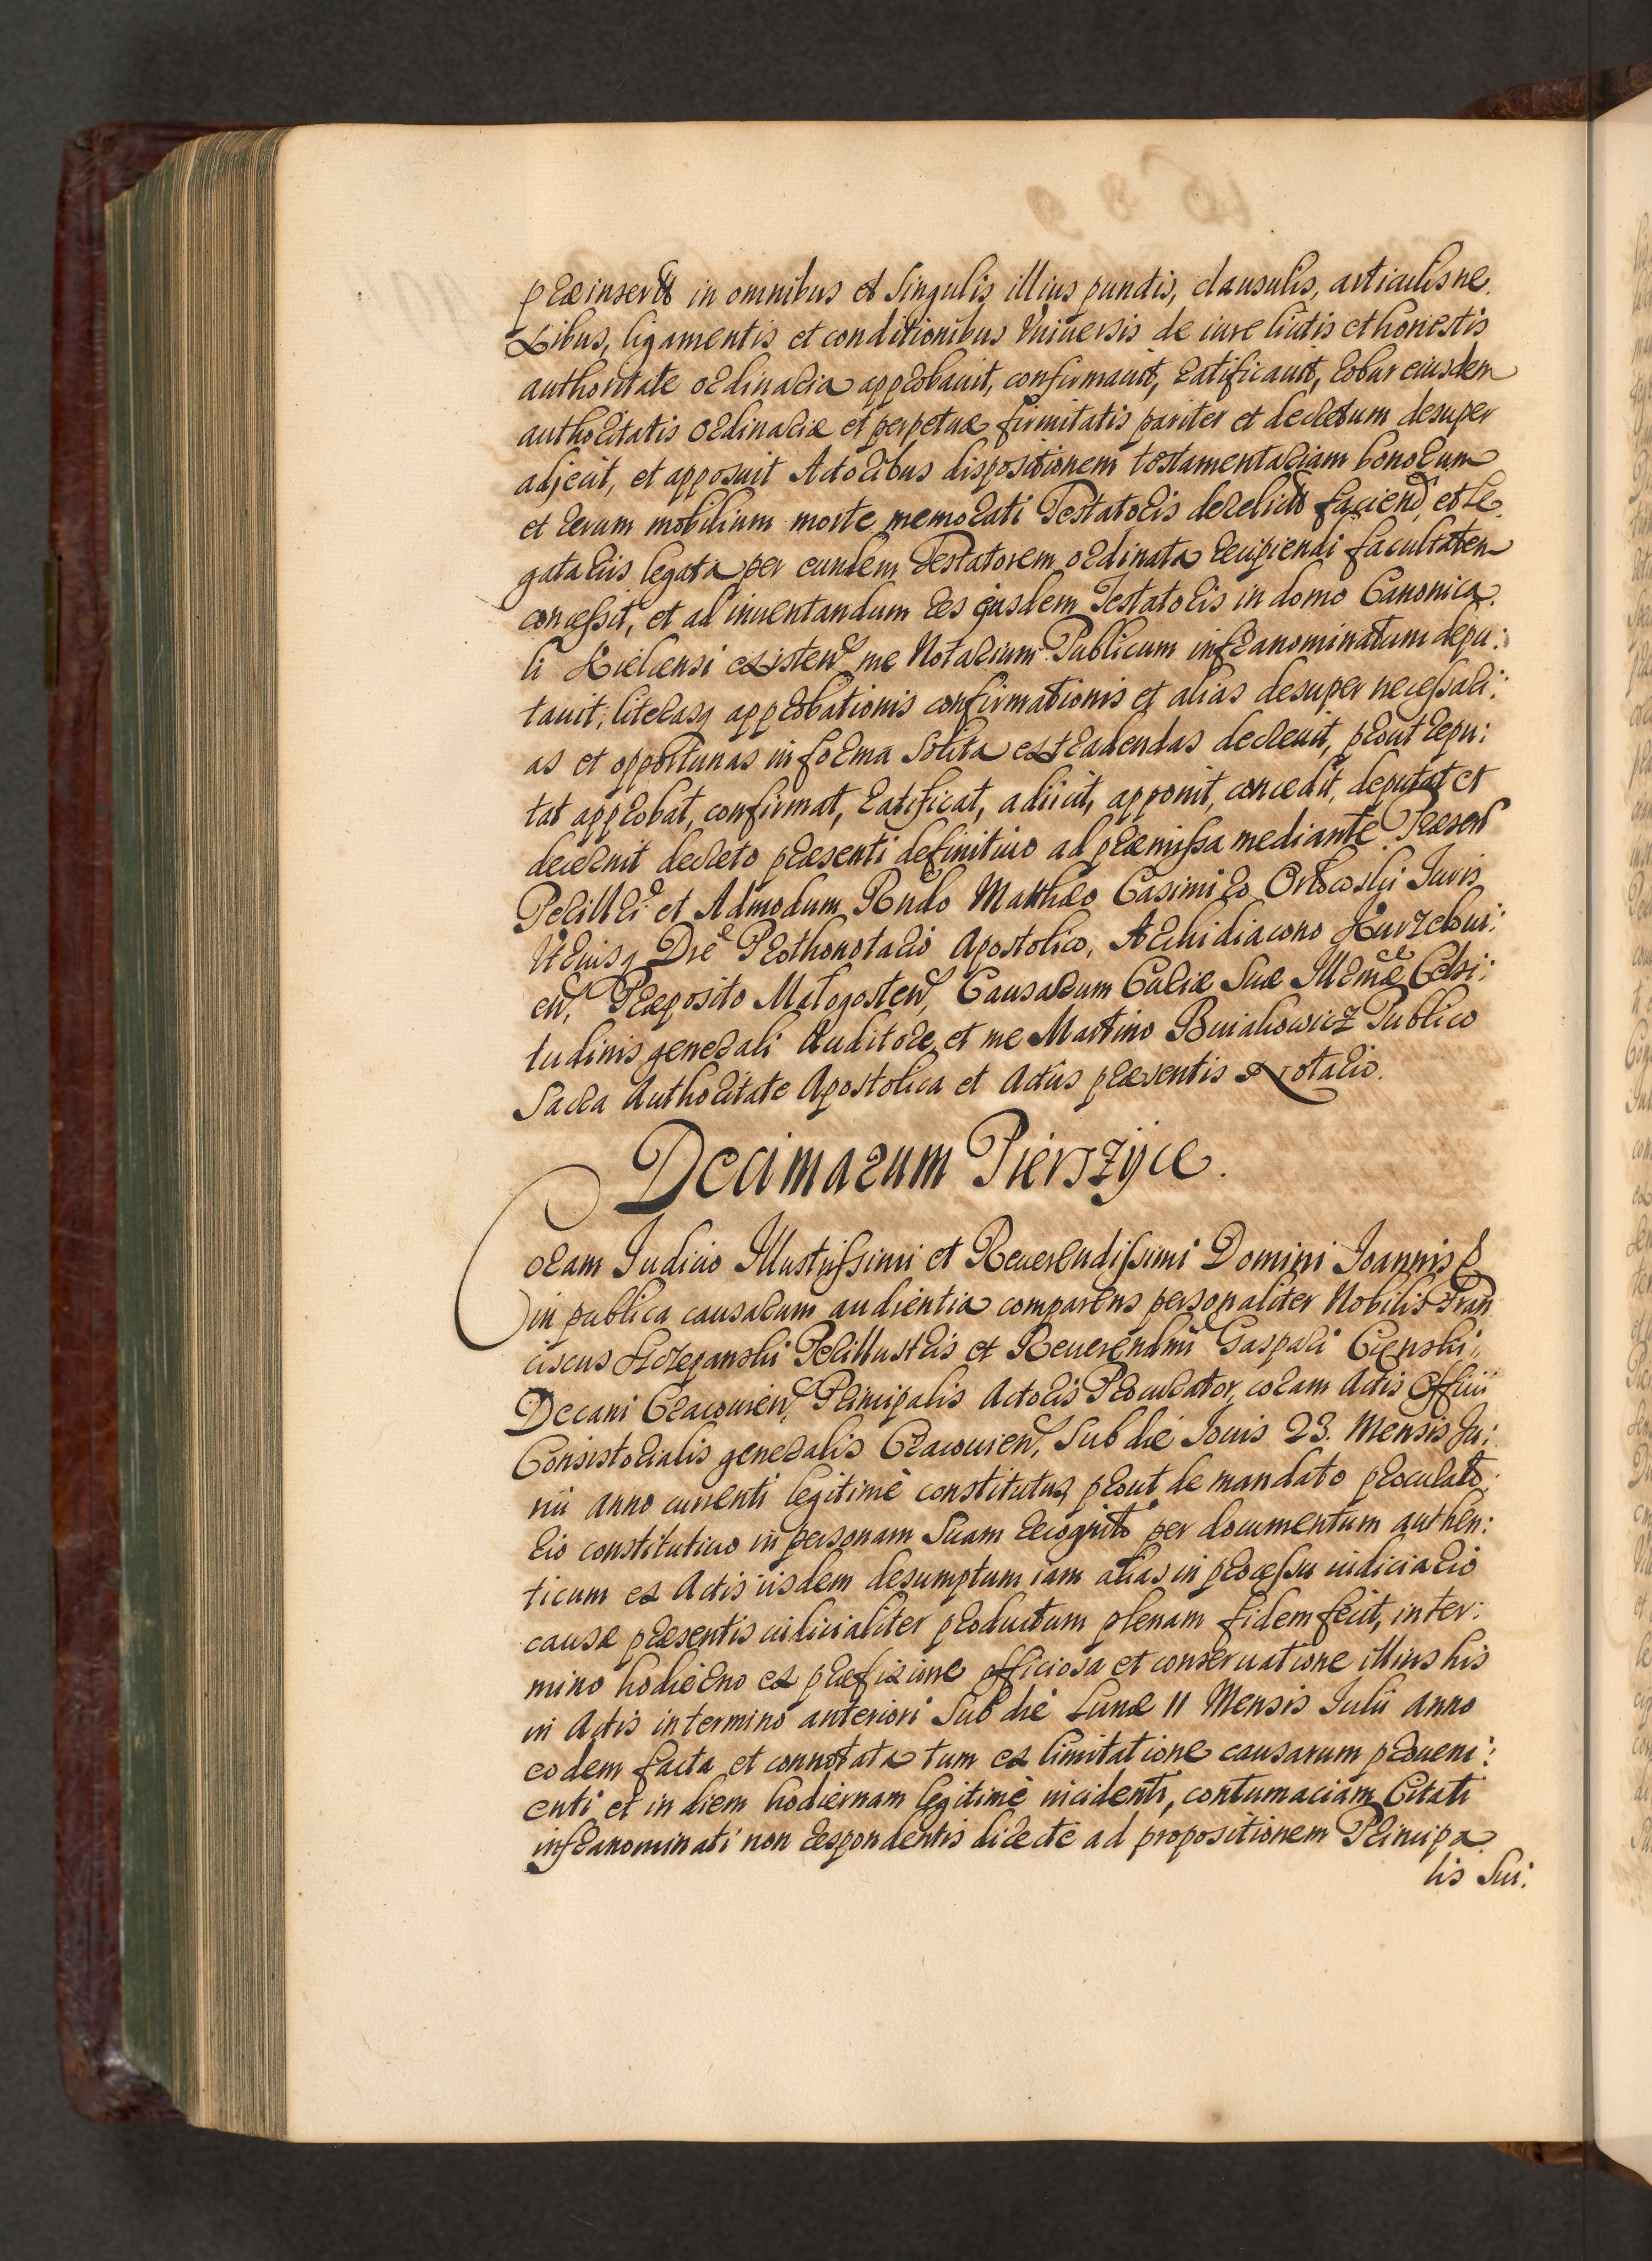 præinsert in omnibus et singulis illius punctis, clausulis, articulis ne.
xibus, ligamentis et conditionibus Vniuersis de iure licitis et honestis
authoritate ordinaria approbauit, confirmauit, ratificauit, robur eiusdem
authoritatis ordinariæ et perpetuæ firmitatis pariter et decretum desuper
adjecit, et apposuit Actoribus dispositionem testamentariam bonorum
et rerum mobilium morte memorati Testatoris derelict faciend, et Le.
gatariis legata per eundem Testatorem ordinata recipiendi facultatem
concessit, et ad inuentandum res ejusdem Testatoris in domo Canonica.
li Kielcensi existen me Notarium Publicum infranominatum depu:
tauit; literasq approbationis confirmationis et alias desuper necessari:
as et opportunas in forma solita extradendas decreuit, prout repu:
tat approbat, confirmat, ratificat, adiicit, apponit, concedit, deputat et
decernit decreto præsenti definitiuo ad præmissa mediante. Præsen
Perilli et Admodum Rndo Matthæo Casimiro Juris
Vtriusq Dre Prothonotario Apostolico, Archidiacono Kurzelouî:
en, Præposito Malogosten, Causarum Curiæ Suæ Illmæ Celsi:
tudinis generali Auditore, et me Martino Buiakowicz Publico
Sacra Authoritate Apostolica et Actûs præsentis Notario.
Decimarum Pierszÿce.
Coram Judicio Illustrissimi et Reuerendissimi Domini Joannis
in publica causarum audientia comparens personaliter Nobilis Fran
ciscus Perillustris et Reuerendmi Gaspari Cienski,
Decani Cracouien, Principalis Actoris Procurator, coram Actis Officii
Consistorialis generalis Cracouien, sub die Jouis 23. Mensis Ju:
nii anno currenti legitimè constitutus, prout de mandato procurato.
rio constitutiuo in personam suam recognito per documentum authen:
ticum ex Actis iisdem desumptum iam alias in processu iudiciario
causæ præsentis iudicialiter productum plenam fidem fecit, in ter:
mino hodierno ex præfixione officiosa et conseruatione illius his
in Actis in termino anteriori sub die Lunæ 11 Mensis Julii anno
eodem facta et connotata tum ex limitatione causarum proueni:
enti et in diem hodiernam legitimè incidenti, contumaciam Citati
infranominati non respondentis directè ad propositionem Principa
lis Sui: